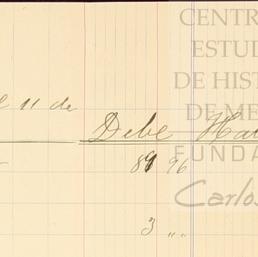 CENTR
ESTUD
DE HIST
DE ME
FUNDA
Carlos
l 11 de
Debe Ha
89 96
3 „ „